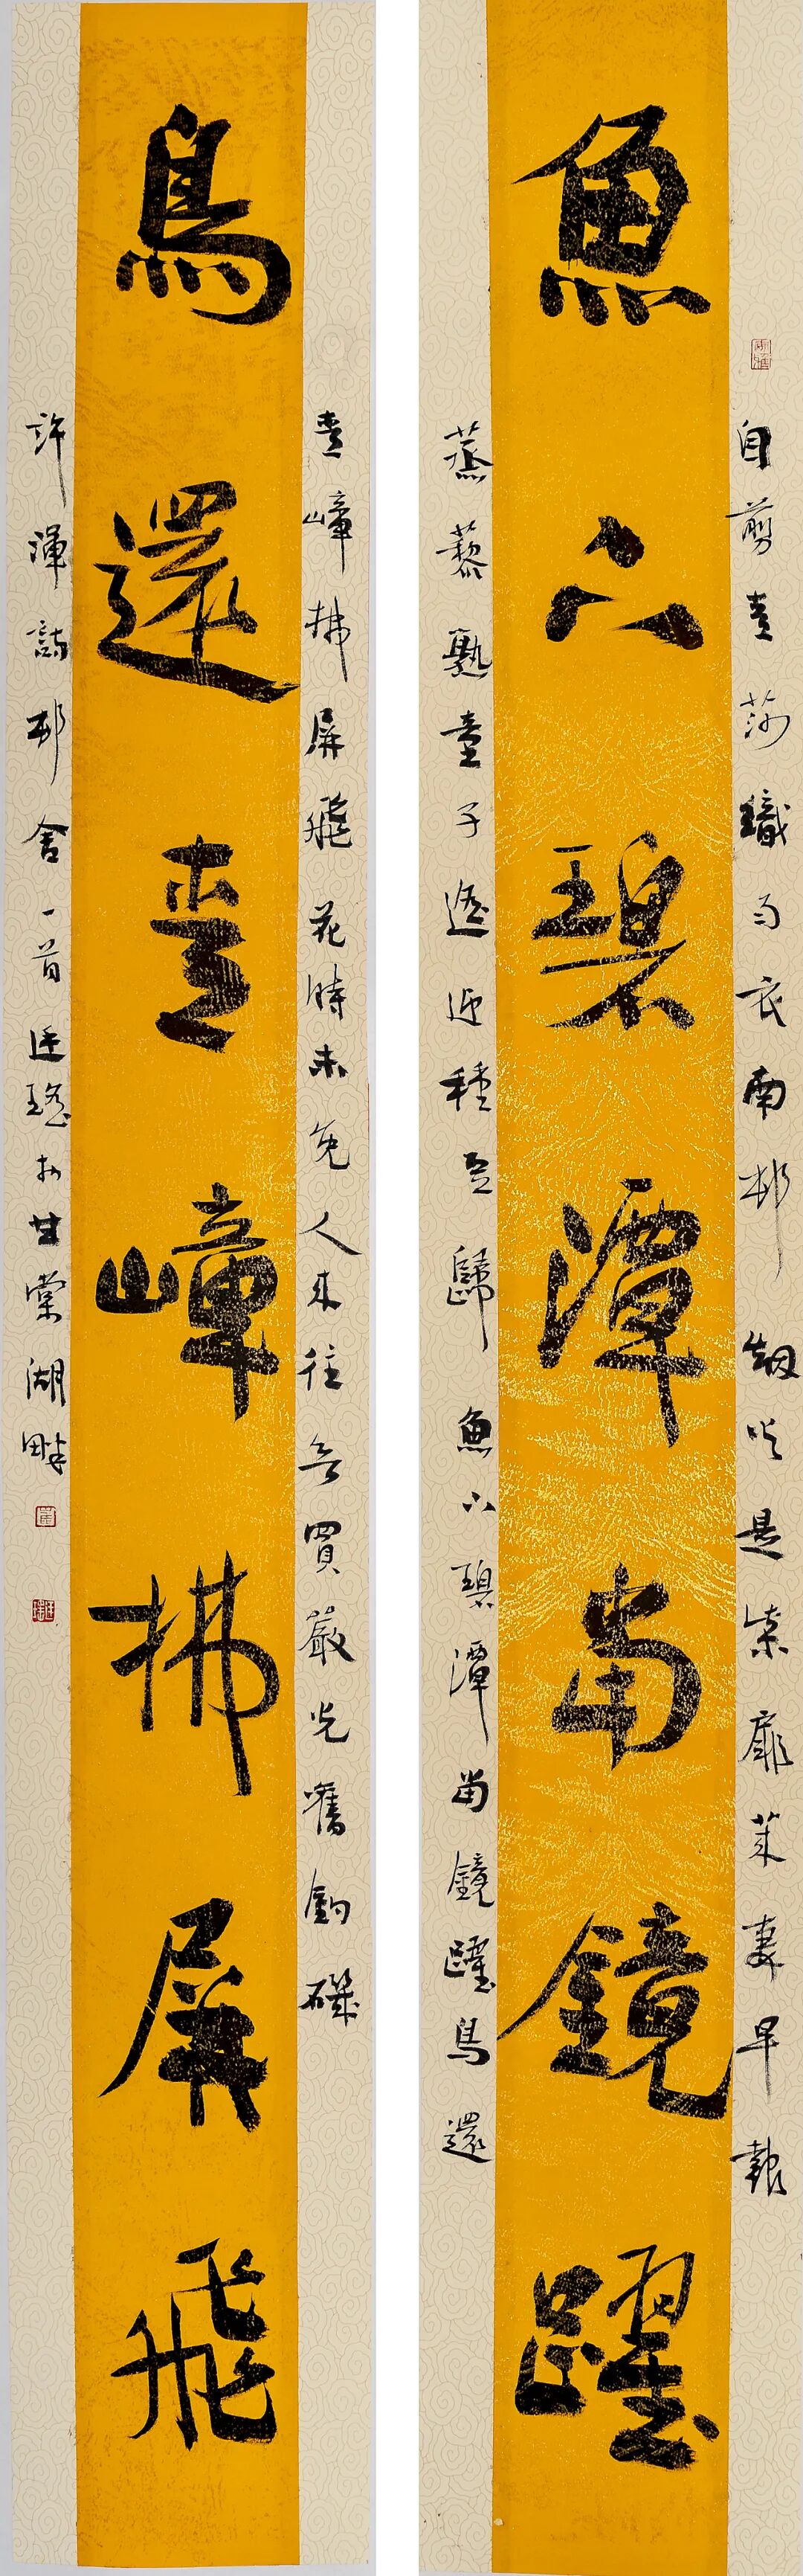 魚下碧潭當鏡躍
鳥還青嶂拂屏飛
自剪青莎織雨衣南邨烟火是柴扉萊妻早報
蒸藜熟童子遙迎種豆歸魚下碧潭當鏡躍鳥還
青嶂拂屏飛花時未免人來往欲買嚴光舊釣磯
許渾詩邨舍一首廷瑤於甘棠湖畔